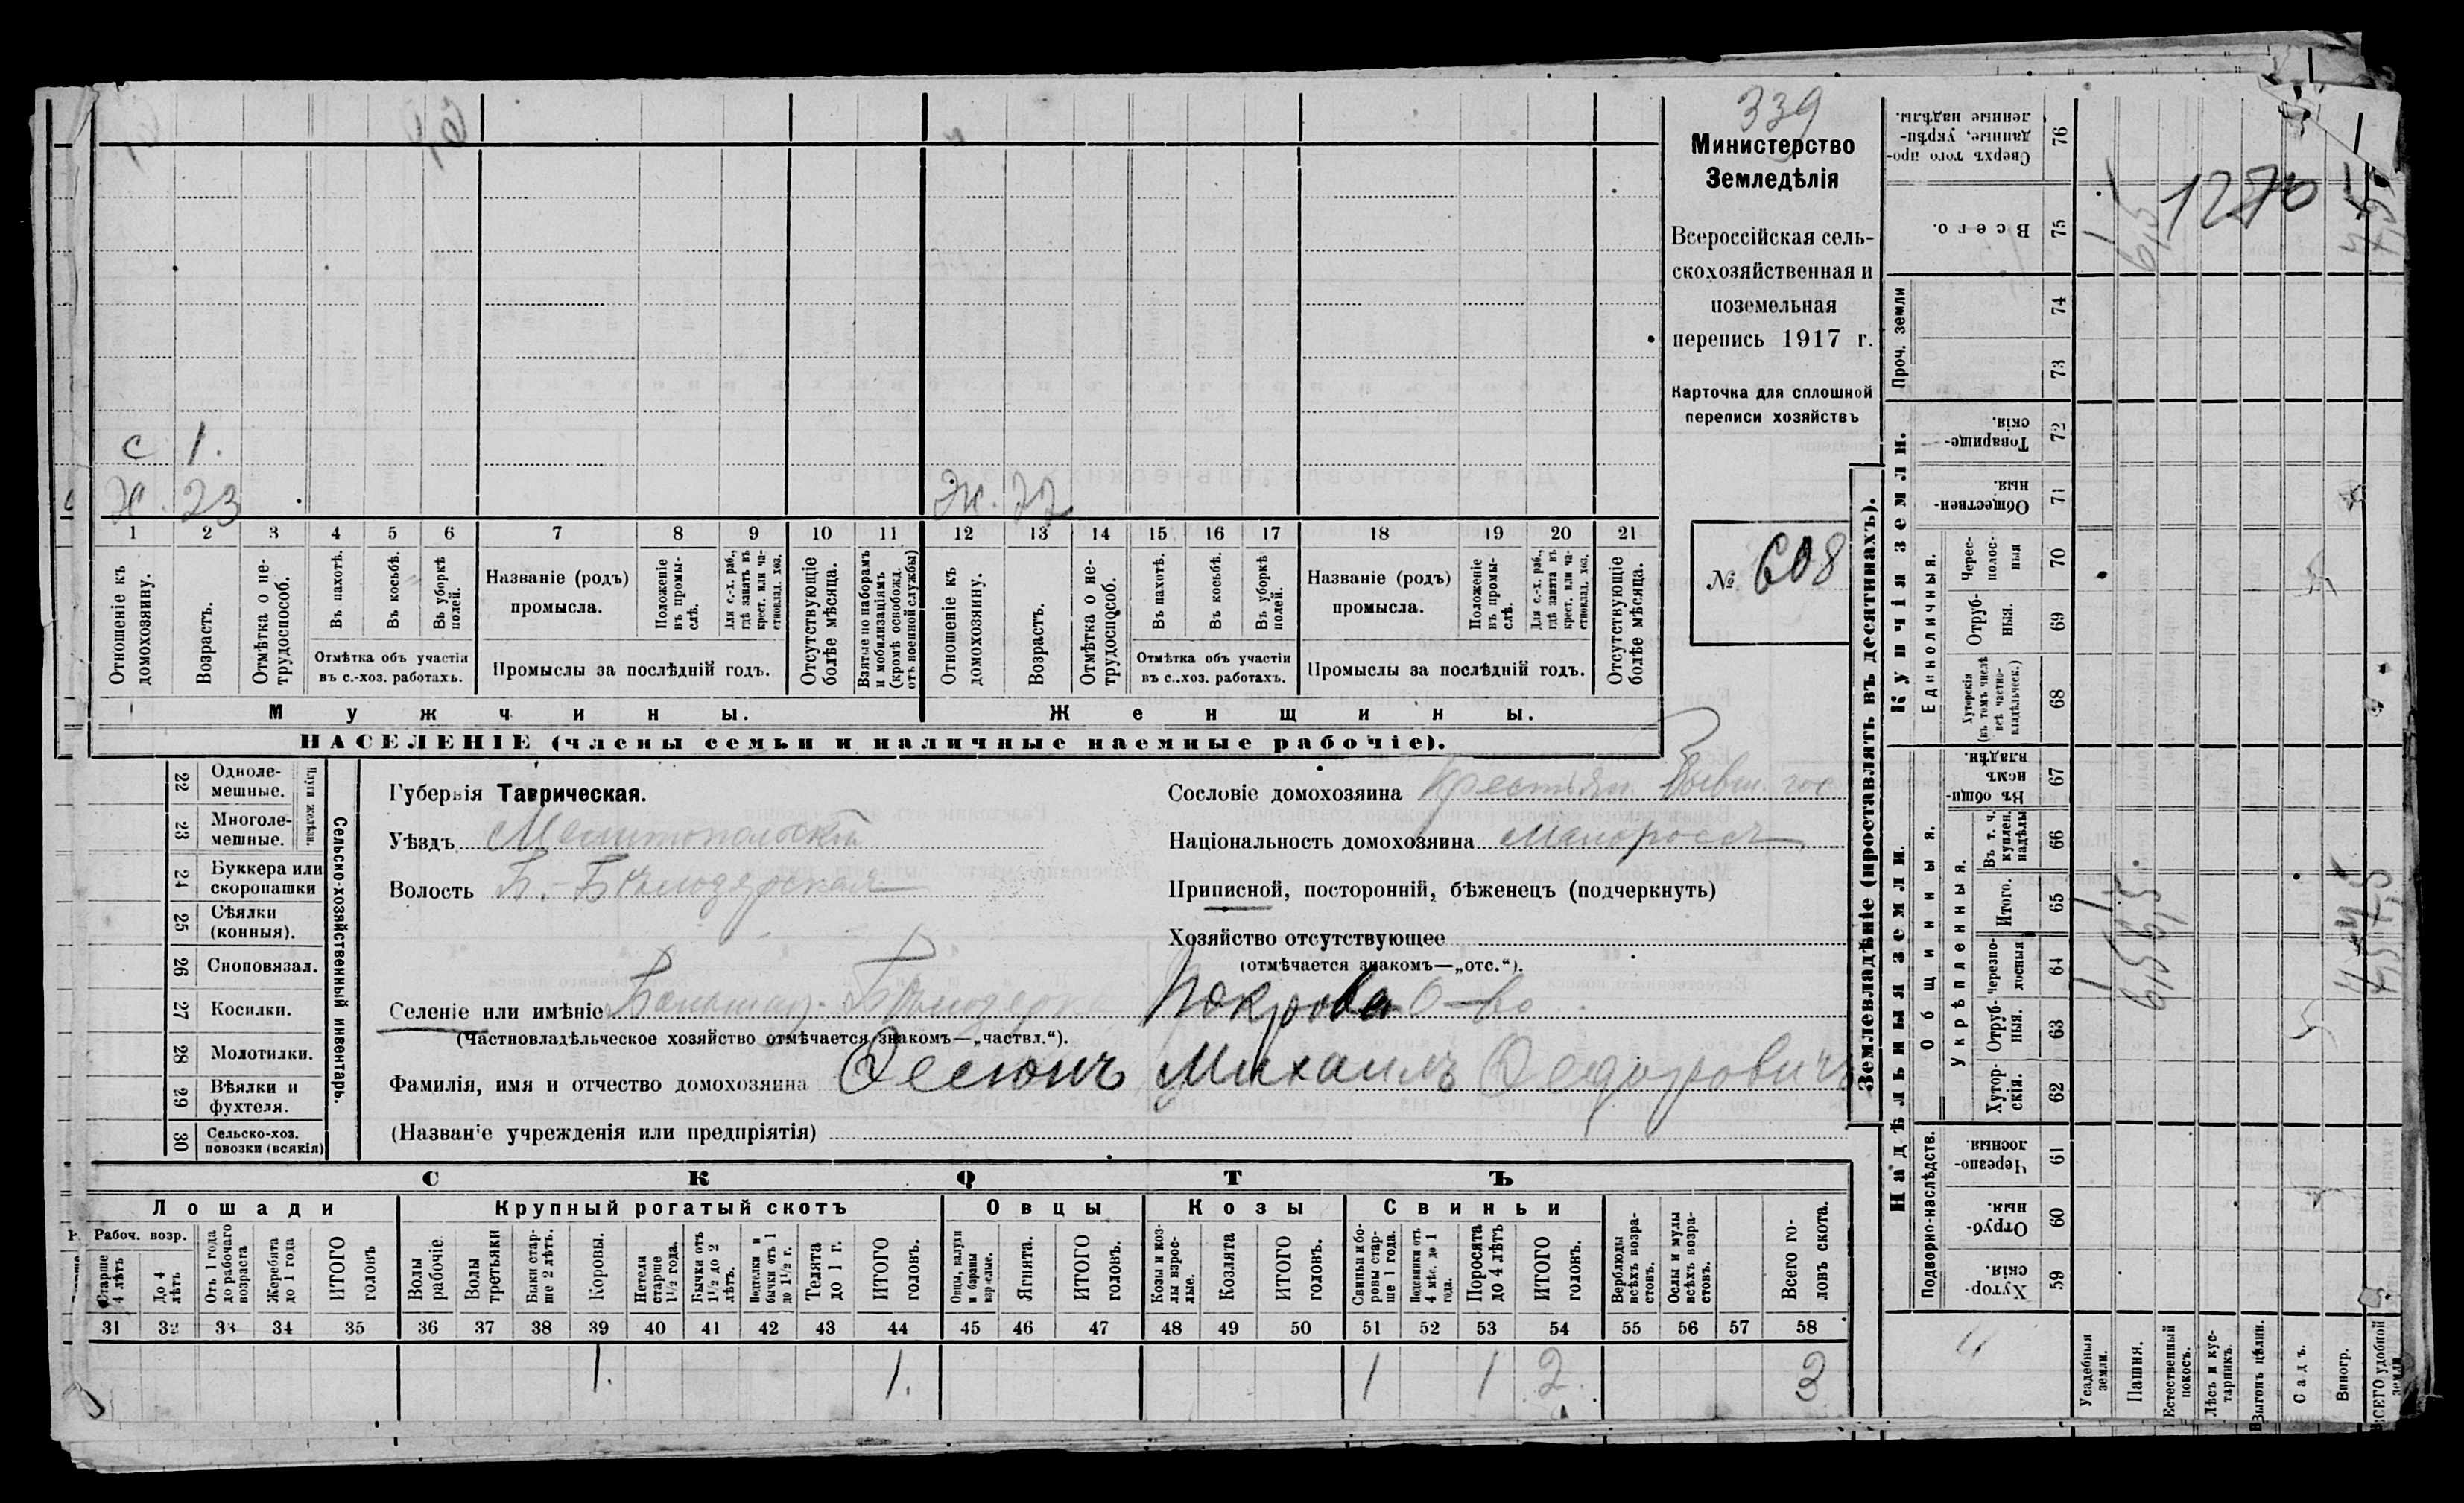 339
Министерство
Земледѣлія
Всероссійская сель-
скохозяйственная и
поземельная
перепись 1917 г.
Карточка для сплошной
переписи хозяйствъ
№ 608
с 1.
Х. 23
Ж. 22
1 2 3 4 5 6 7 8 9 10 11 12 13 14 15 16 17 18 19 20 21
Отношеніе къ домохозяину.
Возрастъ.
Отмѣтка о не-трудоспособ.
Въ пахотѣ.
Въ косьбѣ.
Въ уборкѣ полей.
Отмѣтка объ участіи
въ с.-хоз. работахъ.
Названіе (родъ)
промысла.
Положеніе въ промы-слѣ.
Для с.-х. раб., гдѣ занятъ въ крест. или ча-стновлад. хоз.
Промыслы за послѣдній годъ.
Отсутствующіе болѣе мѣсяца.
Взятые по наборамъ и мобилизаціямъ (кромѣ освобожд. отъ военной службы)
Отношеніе къ домохозяину.
Возрастъ.
Отмѣтка о не-трудоспособ.
Въ пахотѣ.
Въ косьбѣ.
Въ уборкѣ полей.
Отмѣтка объ участіи
въ с.-хоз. работахъ.
Названіе (родъ)
промысла.
Положеніе въ промы-слѣ.
Для с.-х. раб., гдѣ занята въ крест. или ча-стновлад. хоз.
Промыслы за послѣдній годъ.
Отсутствующіе болѣе мѣсяца.
Мужчины. Женщины.
НАСЕЛЕНІЕ (члены семьи и наличные наемные рабочіе).
22 Одноле-мешные.
23 Многоле-мешные.
Плуги желѣзн.
24 Буккера или скоропашки
25 Сѣялки (конныя).
26 Сноповязал.
27 Косилки.
28 Молотилки.
29 Вѣялки и фухтеля.
30 Сельско-хоз. повозки (всякія)
Сельско-хозяйственный инвентарь.
Губернія Таврическая.
Уѣздъ Мелитопольскій
Волость Б.-Бѣлозерская
Сословіе домохозяина Крестьян. бывш. гос
Національность домохозяина малороссъ
Приписной, посторонній, бѣженецъ (подчеркнуть)
Хозяйство отсутствующее
(отмѣчается знакомъ—„отс.“).
Селеніе или имѣніе Большая-Бѣлозерка Покров О-во
(Частновладѣльческое хозяйство отмѣчается знакомъ—„частвл.“).
Фамилія, имя и отчество домохозяина Михаилъ Федоровичъ
(Названіе учрежденія или предпріятія)
СКОТЪ
Лошади Крупный рогатый скотъ Овцы Козы Свиньи
Рабоч. возр.
Старше 4 лѣтъ
До 4 лѣтъ
Отъ 1 года до рабочаго возраста
Жеребята до 1 года
ИТОГО головъ
Волы рабочіе
Волы третьяки
Быки стар-ше 2 лѣтъ.
Коровы.
Нетели старше 1½ года.
Бычки отъ 1½ до 2 лѣтъ.
Нетелки и бычки отъ 1 до 1½ г.
Телята до 1 г.
ИТОГО головъ.
Овцы, валухи и бараны взрослые.
Ягнята.
ИТОГО головъ.
Козы и коз-лы взрос-лые.
Козлята
ИТОГО головъ.
Свиньи и бо-ровы стар-ше 1 года.
Подсвинки отъ 4 мѣс. до 1 года.
Поросята до 4 лѣтъ
ИТОГО головъ.
Верблюды всѣхъ возра-стовъ.
Ослы и мулы всѣхъ возра-стовъ.
Всего го-ловъ скота.
31 32 33 34 35 36 37 38 39 40 41 42 43 44 45 46 47 48 49 50 51 52 53 54 55 56 57 58
1. 1. 1 1 2. 3
Землевладѣніе (проставлять въ десятинахъ).
Купчія земли.
Проч. земли
Единоличныя.
Надѣльныя земли.
Общинныя.
Укрѣпленныя.
Подворно-наслѣдств.
76 Сверхъ того про-данные, укрѣп-ленные надѣлы.
75 Всего. 1270
74
73
72 Товарище-скія.
71 Обществен-ныя.
70 Черес-полос-ныя
69 Отруб-ныя.
68 Хуторскія (въ томъ числѣ всѣ частно-владѣльческ.)
67 Въ общин-номъ владѣн.
66 Въ т. ч. куплен. надѣлы
65 Итого.
64 черезпо-лосныя
63 Отруб-ныя.
62 Хутор-скія.
61 Черезпо-лосныя.
60 Отруб-ныя.
59 Хутор-скія.
Усадебныя земли.
Пашня.
Естественный покосъ.
Лѣсъ и кус-тарникъ.
Выгонъ цѣлин.
Садъ.
Виногр.
ВСЕГО удобной земли